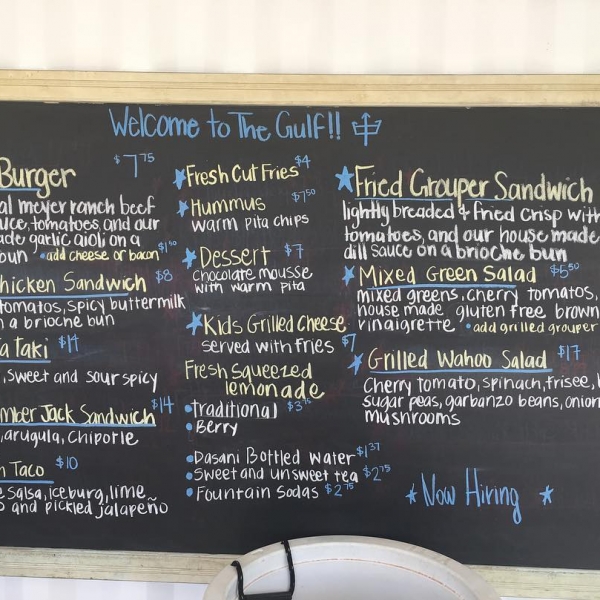 Welcome to The Gulf!!
Burger $7.75
al meyer ranch beef
uce, tomatoes, and our
ade garlic aioli on a
bun • add cheese or bacon $1.00
hicken Sandwich $8
tomatoes, spicy buttermilk
n a brioche bun
a Taki $14
, sweet and sour spicy
mber Jack Sandwich $14
, arugula, chipotle
h Taco $10
e salsa, iceburg, lime
o and pickled jalapeño
Fresh Cut Fries $4
Hummus $7.50
warm pita chips
Dessert $7
chocolate mousse
with warm pita
Kids Grilled Cheese
served with fries $7
Fresh Squeezed
lemonade
• traditional $3.75
• Berry
• Dasani Bottled water $1.37
• Sweet and unsweet tea $2.75
• Fountain Sodas $2.75
Fried Grouper Sandwich
lightly breaded & fried crisp with
tomatoes, and our house made
dill sauce on a brioche bun
Mixed Green Salad $5.50
mixed greens, cherry tomatos,
house made gluten free brown
vinaigrette • add grilled grouper
Grilled Wahoo Salad $17
Cherry tomato, spinach, frisee,
sugar peas, garbanzo beans, onion
mushrooms
Now Hiring